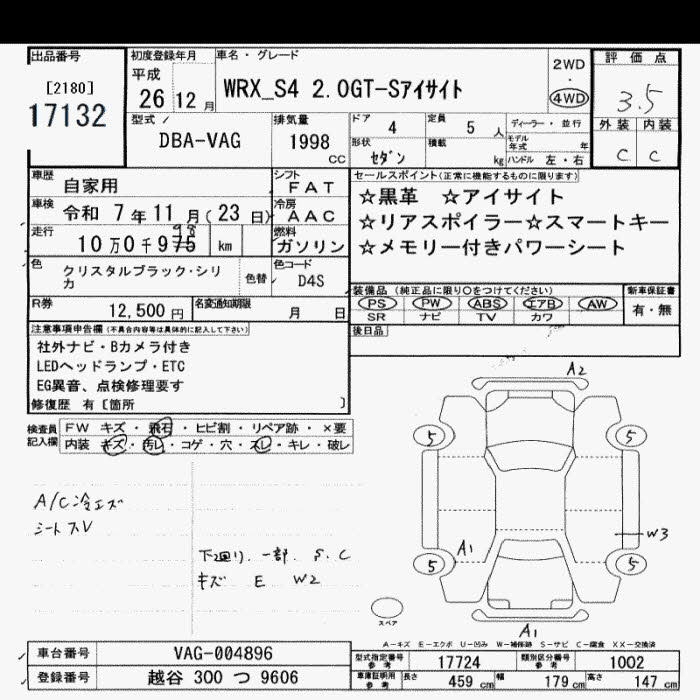 出品番号
[2180]
17132
初度登録年月
平成
26 12 月
車名・グレード
WRX_S4 2.0GT-Sアイサイト
2WD
・
4WD
評価点
3.5
外装 内装
C C
型式
DBA-VAG
排気量
1998
CC
ドア 4 定員 5 人
形状 セダン 積載 kg
ディーラー・並行
モデル年式 年
ハンドル 左・右
車歴 自家用
車検 令和 7 年 11 月( 23 日)
走行 10 万 0 千 975 km
98
シフト FAT
冷房 AAC
燃料 ガソリン
色 クリスタルブラック・シリカ
色替
色コード D4S
R券 12,500 円
名変通知期限 月 日
セールスポイント(正常に機能するものに限ります)
☆黒革 ☆アイサイト
☆リアスポイラー☆スマートキー
☆メモリー付きパワーシート
装備品(純正品に限り○をつけてください)
PS PW ABS エアB AW
SR ナビ TV カワ
新車保証書
有・無
後日品
注意事項申告欄(不具合内容等は具体的に記入して下さい)
社外ナビ・Bカメラ付き
LEDヘッドランプ・ETC
EG異音、点検修理要す
修復歴 有〔箇所 〕
検査員記入欄
FW キズ・飛石・ヒビ割・リペア跡・×要
内装 キズ・汚レ・コゲ・穴・スレ・キレ・破レ
A/C冷エズ
シートスレ
下廻り、一部 S、C
キズ E W2
A2
5 5
A1
W3
5 5
スペア
A1
A-キズ E-エクボ U-凹み W-補修跡 S-サビ C-腐食 XX-交換済
車台番号 VAG-004896
登録番号 越谷 300 つ 9606
型式指定番号 参考 17724
類別区分番号 参考 1002
車庫証明用 参考 長さ 459 cm 幅 179 cm 高さ 147 cm